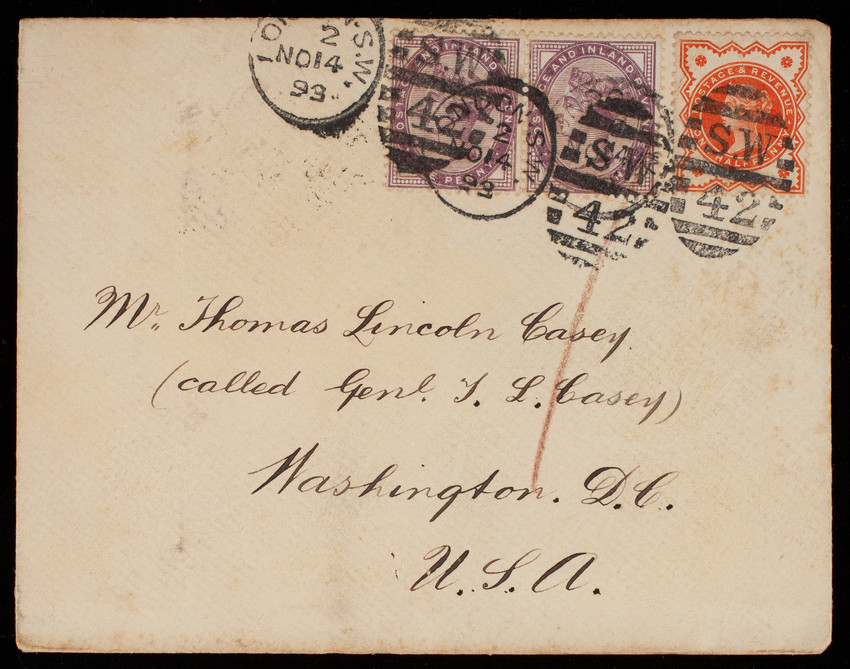 LONDON.S.W.
2
NO14
93
POSTAGE AND INLAND
PENNY
S.W
42
LONDON.S.W.
2
NO14
93
POSTAGE AND INLAND RE
S.W
42
POSTAGE & REVENUE
HALFPENNY
S.W
42
Mr. Thomas Lincoln Casey.
(called Genl. T. L. Casey)
Washington. D.C.
U.S.A.